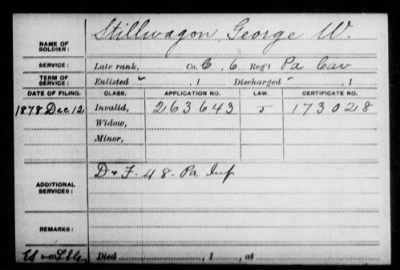 NAME OF SOLDIER: Stillwagon, George W.
SERVICE: Late rank, Co. C, 6, Reg't Pa Cav
TERM OF SERVICE: Enlisted , 1 Discharged , 1
DATE OF FILING. CLASS. APPLICATION NO. LAW. CERTIFICATE NO.
1878 Dec 12 Invalid, 263643 173028
Widow,
Minor,
ADDITIONAL SERVICES: D + F. 48. Pa Inf
REMARKS:
Died , 1 , at